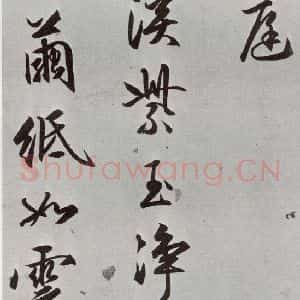 庭
溪紫玉净
繭紙如雲
Shufawang.CN